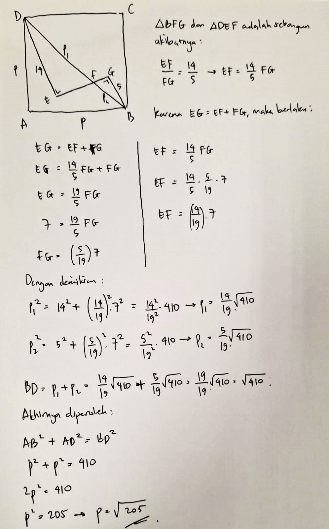 D
C
P₁
P
14
F
G
5
E
P₂
A
P
B
△BFG dan △DEF adalah sebangun
akibatnya:
EF/FG = 14/5 → EF = 14/5 FG
Karena EG = EF + FG, maka berlaku:
EG = EF + FG
EG = 14/5 FG + FG
EG = 19/5 FG
7 = 19/5 FG
FG = (5/19) 7
EF = 14/5 FG
EF = 14/5 · 5/19 · 7
EF = (14/19) · 7
Dengan demikian:
P₁² = 14² + (14/19)² · 7² = 14²/19² · 410 → P₁ = 14/19 √410
P₂² = 5² + (5/19)² · 7² = 5²/19² · 410 → P₂ = 5/19 √410
BD = P₁ + P₂ = 14/19 √410 + 5/19 √410 = 19/19 √410 = √410.
Akhirnya diperoleh:
AB² + AD² = BD²
p² + p² = 410
2p² = 410
p² = 205 → p = √205.